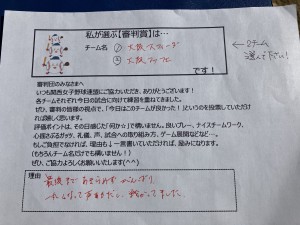 私が選ぶ【審判賞】は…
チーム名 ① 大阪
② 大阪
です!
←2チーム
選んで下さい!
審判団のみなさまへ
いつも関西女子野球連盟にご協力いただき、ありがとうございます!
各チームそれぞれ今日の試合に向けて練習を重ねてきました。
ぜひ、審判の皆様の視点で、「今日はこのチームが良かった!」というのを投票していただければ嬉しく思います。
評価ポイントは、その日感じた「何か☆」で構いません。良いプレー、ナイスチームワーク、
心揺さぶるガッツ、礼儀、声、試合への取り組み方、ゲーム展開などなど…。
もしご負担でなければ、理由も↓一言書いていただければ、励みになります。
(もちろんチーム名だけでも構いません!)
ぜひ、ご協力よろしくお願いいたします(^^)
理由
最後まであきらめずがんばり
声を出し、